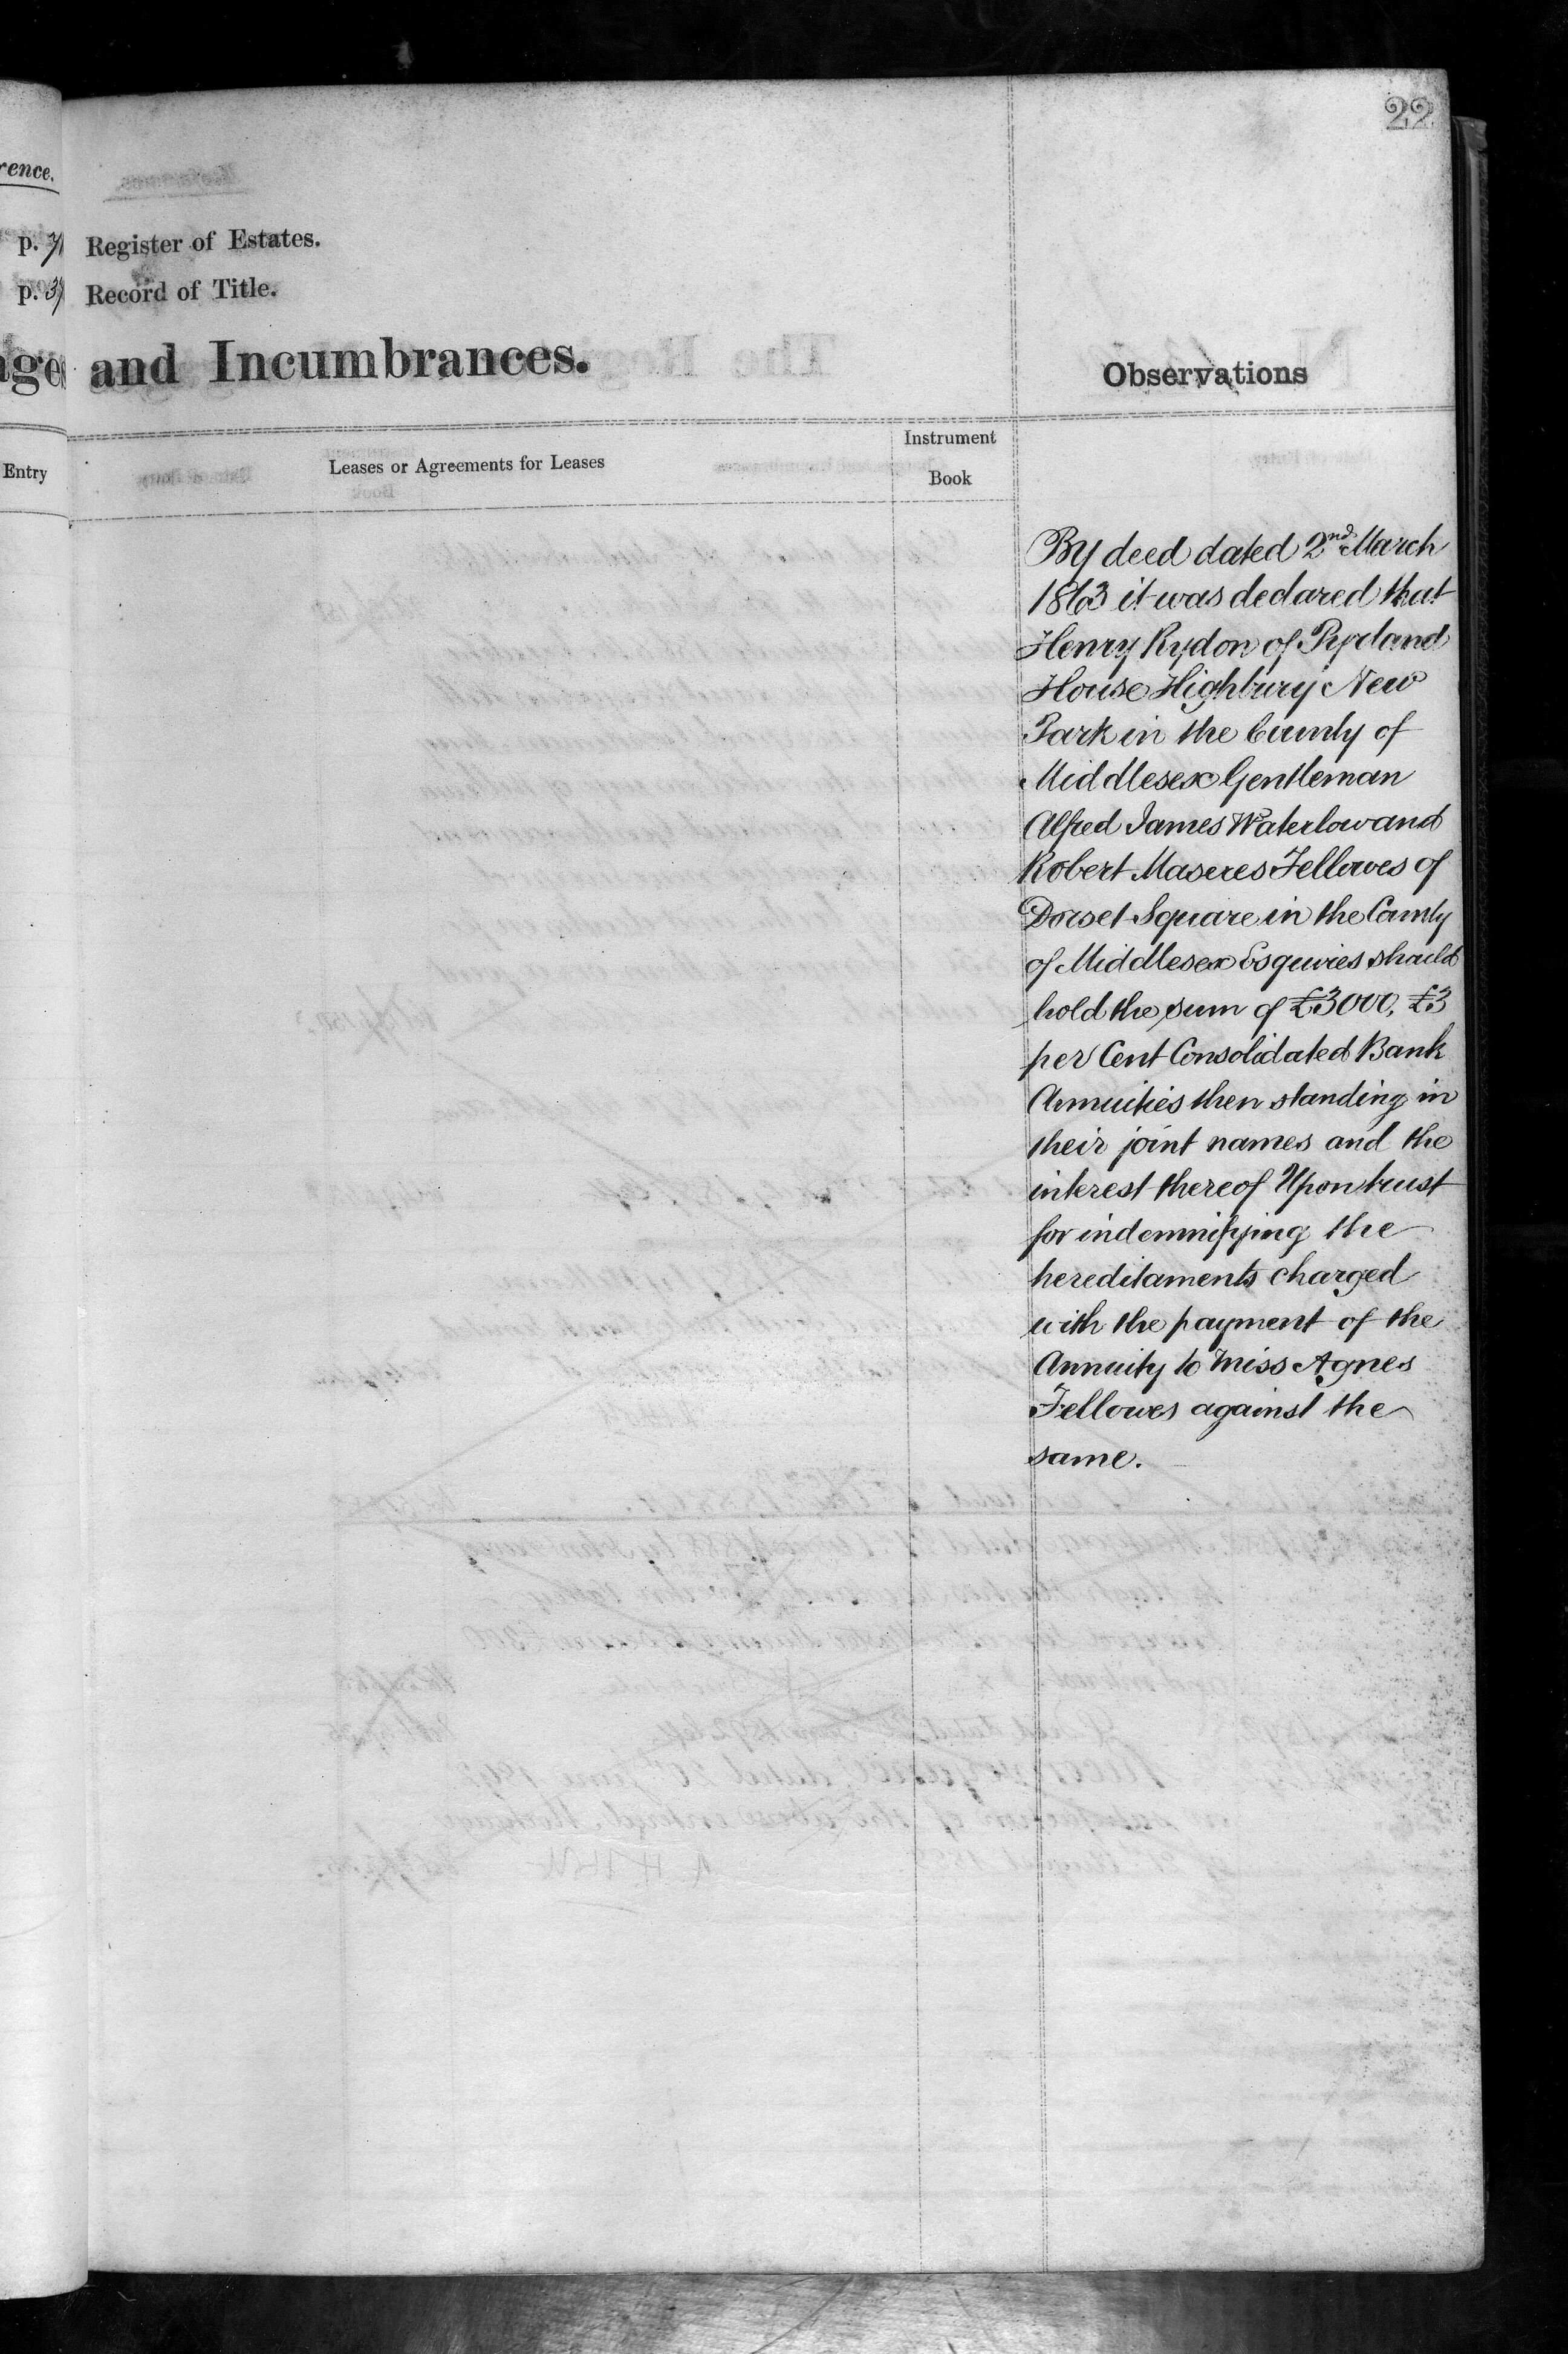 22
rence.
p. 31 Register of Estates.
p. 31 Record of Title.
ges and Incumbrances.
Observations
Entry
Leases or Agreements for Leases
Instrument
Book
By deed dated 2nd March
1863 it was declared that
Henry Rydon of Pyrland
House Highbury New
Park in the County of
Middlesex Gentleman
Alfred James Waterlow and
Robert Maseres Fellowes of
Dorset Square in the County
of Middlesex Esquires should
hold the sum of £3000, £3
per Cent Consolidated Bank
Annuities then standing in
their joint names and the
interest thereof Upon trust
for indemnifying the
hereditaments charged
with the payment of the
Annuity to Miss Agnes
Fellowes against the
same.